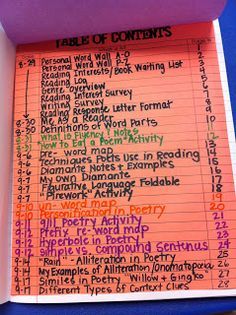 TABLE OF CONTENTS
8-29 Personal Word Wall A-O 1
Personal Word Wall P-Z 2
Reading Interests/Book Waiting List 3
Reading Log 4
Genre Overview 5
Reading Interest Survey
Writing Survey
Reading Response Letter Format
8-30 Me As a Reader
8-30 Definitions of Word Parts
8-31 What is Fluency? Notes
8-31 How to Eat a Poem-Activity
9-6 Pre- word map
9-6 Techniques Poets Use in Reading
9-6 Diamante Notes & Examples
9-7 My Own Diamante
9-7 Figurative Language Foldable
9-7 "Firework" Activity 18
9-10 un- word map 19
9-10 Personification in Poetry 20
9-11 Poetry Activity 21
9-12 Prefix re- word map 22
9-12 Hyperbole in Poetry 23
9-12 Simple vs. Compound Sentences 24
9-14 "Rain" - Alliteration in Poetry 25
9-14 My Examples of Alliteration/Onomatopoeia 26
9-17 Similes in Poetry "Willow + Gingko" 27
9-17 Different Types of Context Clues 28